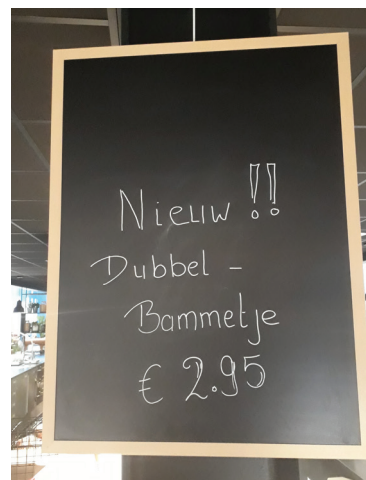 Nieuw !!
Dubbel -
Bammetje
€ 2.95